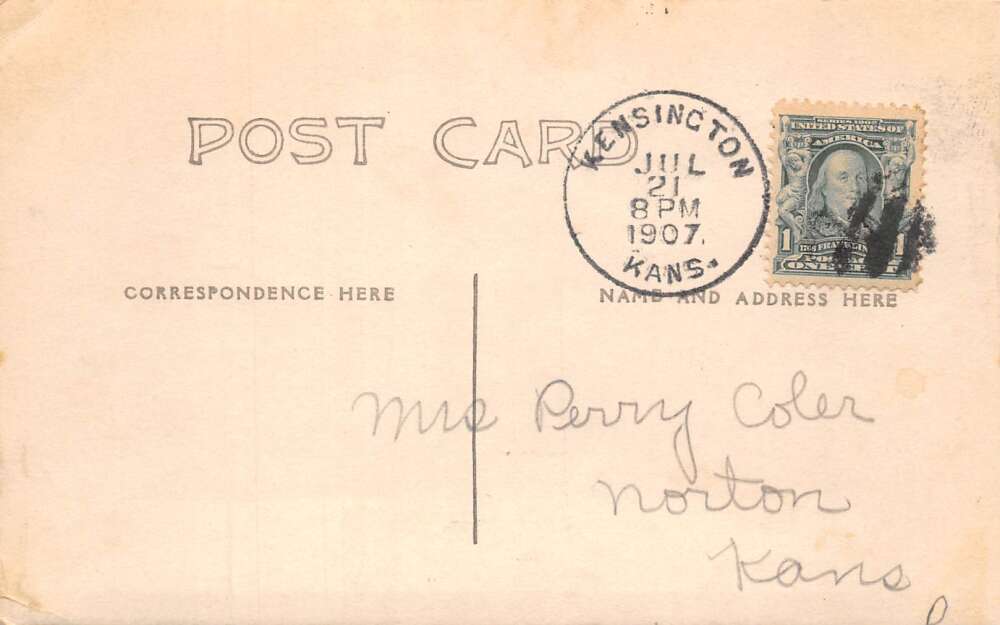 POST CARD
KENSINGTON
JUL
21
8 PM
1907.
KANS.
SERIES 1902
UNITED STATES OF
AMERICA
1 FRANKLIN 1
POSTAGE
ONE CENT
CORRESPONDENCE HERE
NAME AND ADDRESS HERE
Mrs Perry Coler
Norton
Kans